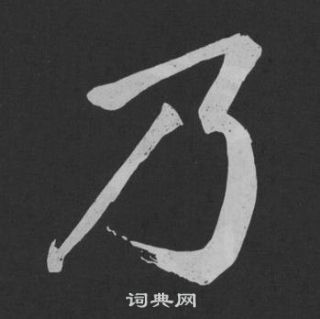 乃
词典网